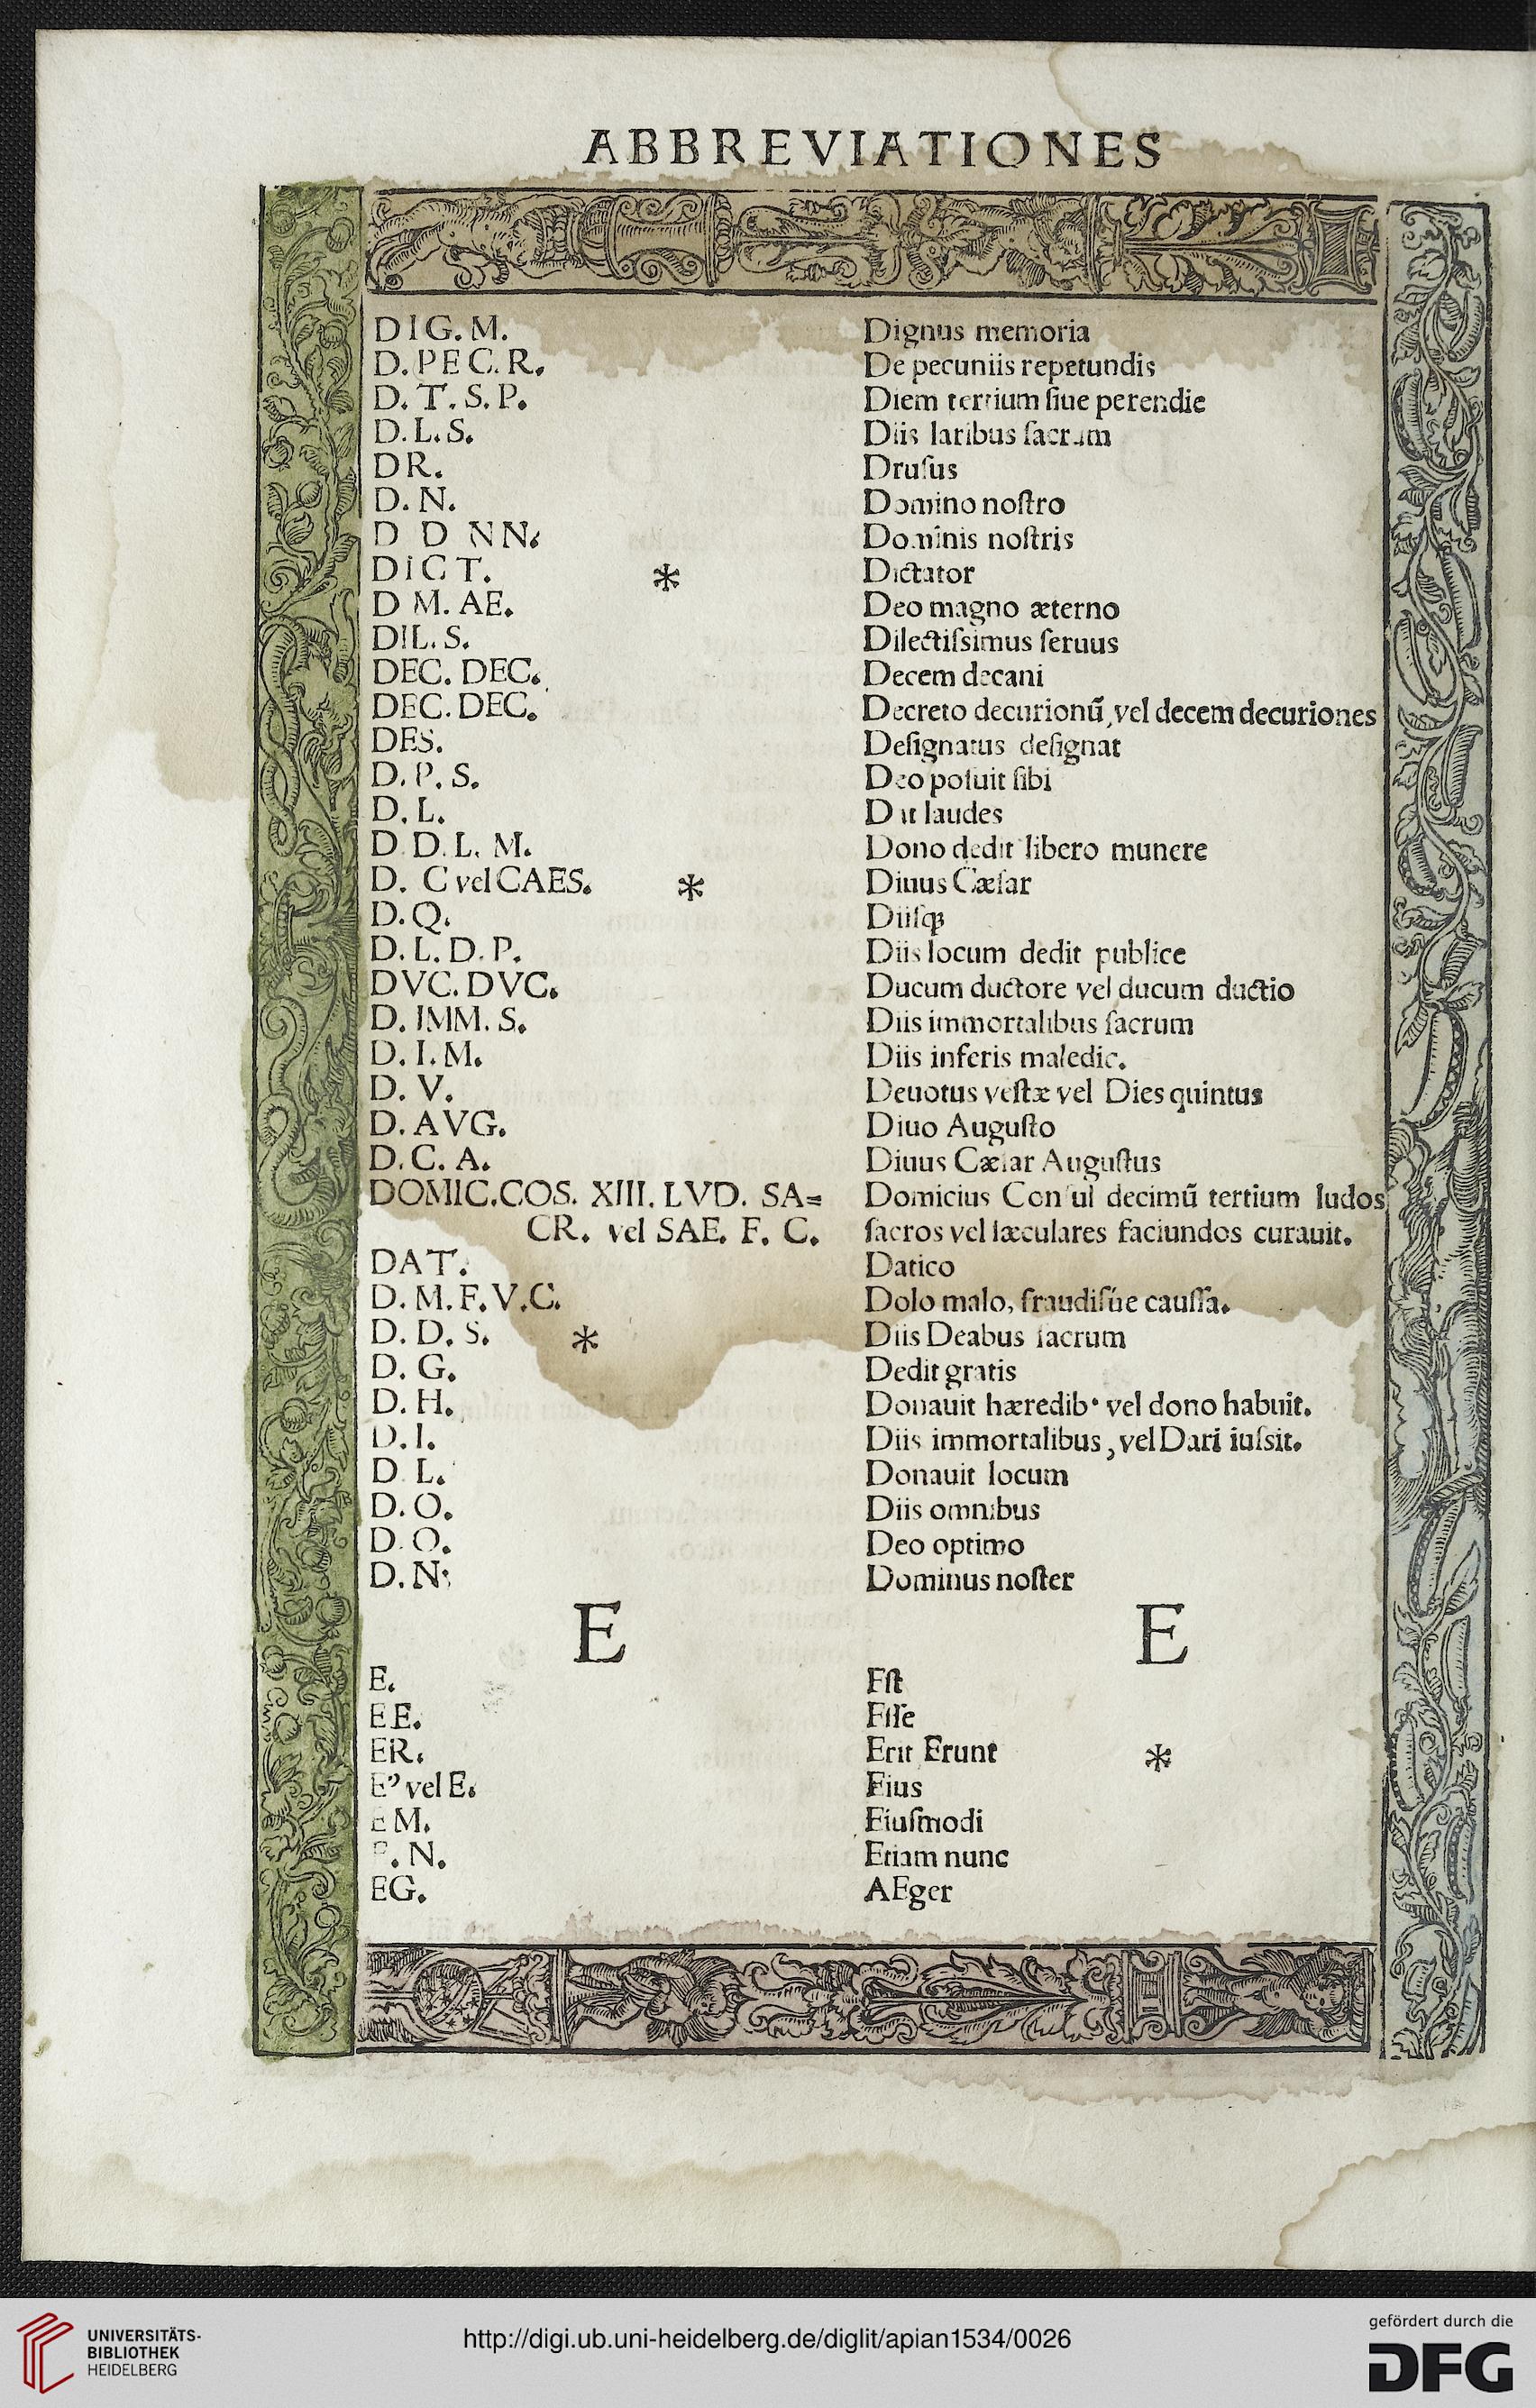 ABBREVIATIONES
DIG. M. Dignus memoria
D. PEC. R. De pecuniis repetundis
D. T. S. P. Diem tertium ſiue perendie
D. L. S. Diis laribus ſacrum
DR. Druſus
D. N. Domino noſtro
D D NN. Dominis noſtris
DICT. * Dictator
D M. AE. Deo magno æterno
DIL. S. Dilectiſsimus ſeruus
DEC. DEC. Decem decani
DEC. DEC. Decreto decurionū, vel decem decuriones
DES. Deſignatus deſignat
D. P. S. Deo poſuit ſibi
D. L. Dat laudes
D D. L. M. Dono dedit libero munere
D. C vel CAES. * Diuus Cæſar
D. Q. Diiſqꝫ
D. L. D. P. Diis locum dedit publice
DVC. DVC. Ducum ductore vel ducum ductio
D. IMM. S. Diis immortalibus ſacrum
D. I. M. Diis inferis maledic.
D. V. Deuotus veſtæ vel Dies quintus
D. AVG. Diuo Auguſto
D. C. A. Diuus Cæſar Auguſtus
DOMIC. COS. XIII. LVD. SA= Domicius Conſul decimū tertium ludos
CR. vel SAE. F. C. ſacros vel ſæculares faciundos curauit.
DAT. Datico
D. M. F. V. C. Dolo malo, fraudiſúe cauſſa.
D. D. S. * Diis Deabus ſacrum
D. G. Dedit gratis
D. H. Donauit hæredib⁹ vel dono habuit.
D. I. Diis immortalibus, vel Dari iuſsit.
D L. Donauit locum
D. O. Diis omnibus
D. O. Deo optimo
D. N: Dominus noſter
E E
E. Eſt
EE. Eſſe
ER. Erit Erunt *
E⁹ vel E. Eius
EM. Eiuſmodi
E. N. Etiam nunc
EG. AEger
UNIVERSITÄTS-
BIBLIOTHEK
HEIDELBERG
http://digi.ub.uni-heidelberg.de/diglit/apian1534/0026
gefördert durch die
DFG